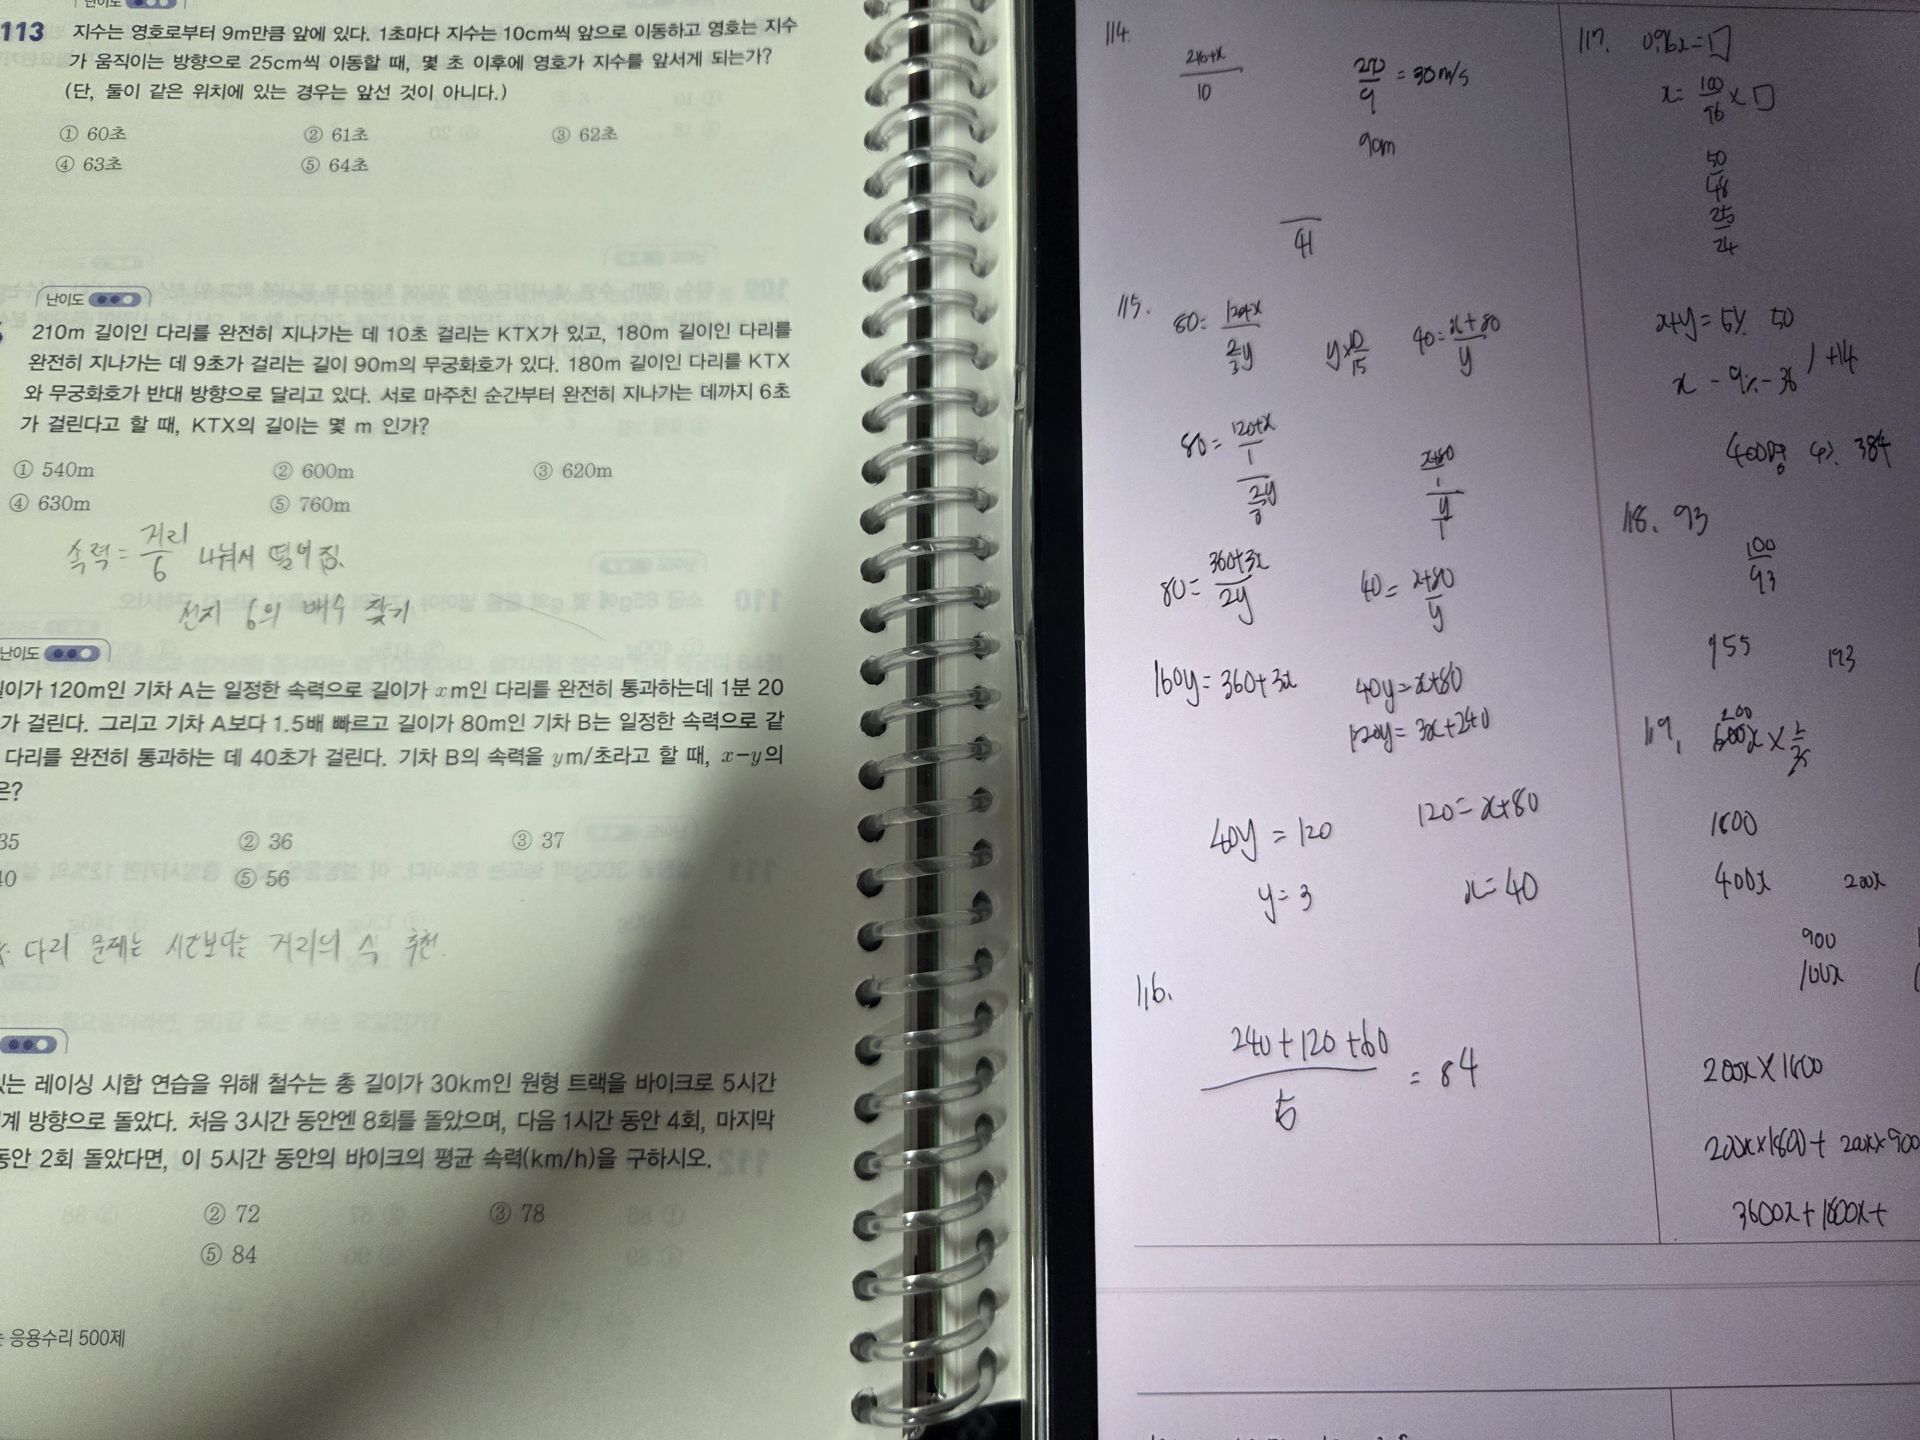 난이도
113 지수는 영호로부터 9m만큼 앞에 있다. 1초마다 지수는 10cm씩 앞으로 이동하고 영호는 지수
가 움직이는 방향으로 25cm씩 이동할 때, 몇 초 이후에 영호가 지수를 앞서게 되는가?
(단, 둘이 같은 위치에 있는 경우는 앞선 것이 아니다.)
① 60초 ② 61초 ③ 62초
④ 63초 ⑤ 64초
난이도
210m 길이인 다리를 완전히 지나가는 데 10초 걸리는 KTX가 있고, 180m 길이인 다리를
완전히 지나가는 데 9초가 걸리는 길이 90m의 무궁화호가 있다. 180m 길이인 다리를 KTX
와 무궁화호가 반대 방향으로 달리고 있다. 서로 마주친 순간부터 완전히 지나가는 데까지 6초
가 걸린다고 할 때, KTX의 길이는 몇 m 인가?
① 540m ② 600m ③ 620m
④ 630m ⑤ 760m
속력 = 거리/6 나눠서 떨어짐.
선지 6의 배수 찾기
난이도
길이가 120m인 기차 A는 일정한 속력으로 길이가 xm인 다리를 완전히 통과하는데 1분 20
가 걸린다. 그리고 기차 A보다 1.5배 빠르고 길이가 80m인 기차 B는 일정한 속력으로 같
다리를 완전히 통과하는 데 40초가 걸린다. 기차 B의 속력을 ym/초라고 할 때, x-y의
은?
35 ② 36 ③ 37
40 ⑤ 56
다리 문제는 시간보다는 거리의 식 추천.
있는 레이싱 시합 연습을 위해 철수는 총 길이가 30km인 원형 트랙을 바이크로 5시간
계 방향으로 돌았다. 처음 3시간 동안엔 8회를 돌았으며, 다음 1시간 동안 4회, 마지막
동안 2회 돌았다면, 이 5시간 동안의 바이크의 평균 속력(km/h)을 구하시오.
② 72 ③ 78
⑤ 84
응용수리 500제
114.
210+x/10
270/9 = 30m/s
90m
41
115.
80 = 120+x / 2/3y
y×10/15
40 = x+80/y
80 = 120+x/1 / 2y/3
x+80/1 / y/1
80 = 360+3x/2y
40 = x+80/y
160y = 360+3x
40y = x+80
120y = 3x+240
40y = 120
120 = x+80
y = 3
x = 40
116.
240+120+60/5 = 84
117. 0.96x = □
x = 100/96 × □
50
48
25
24
x+y = 5% 50
x - 9% - 36 ) +14
400명 4% 384
118. 93
100/93
955
193
119.
200
600x ×
1800
400x 200x
900
100x
200x×1800
200x×1800 + 200x×900
3600x+1800x+